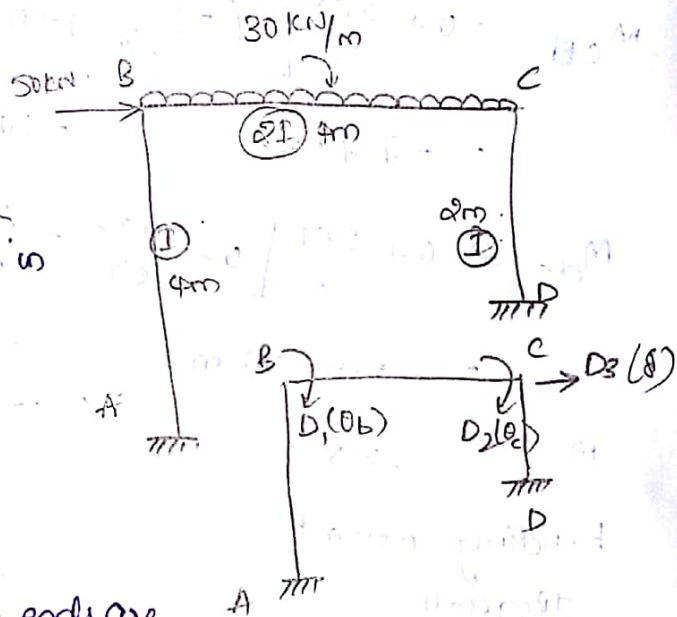 30 KN/m
50KN B C
2I 4m
2m
I I
4m
D
A
B C D3 (δ)
D1(θb) D2(θc)
D
A